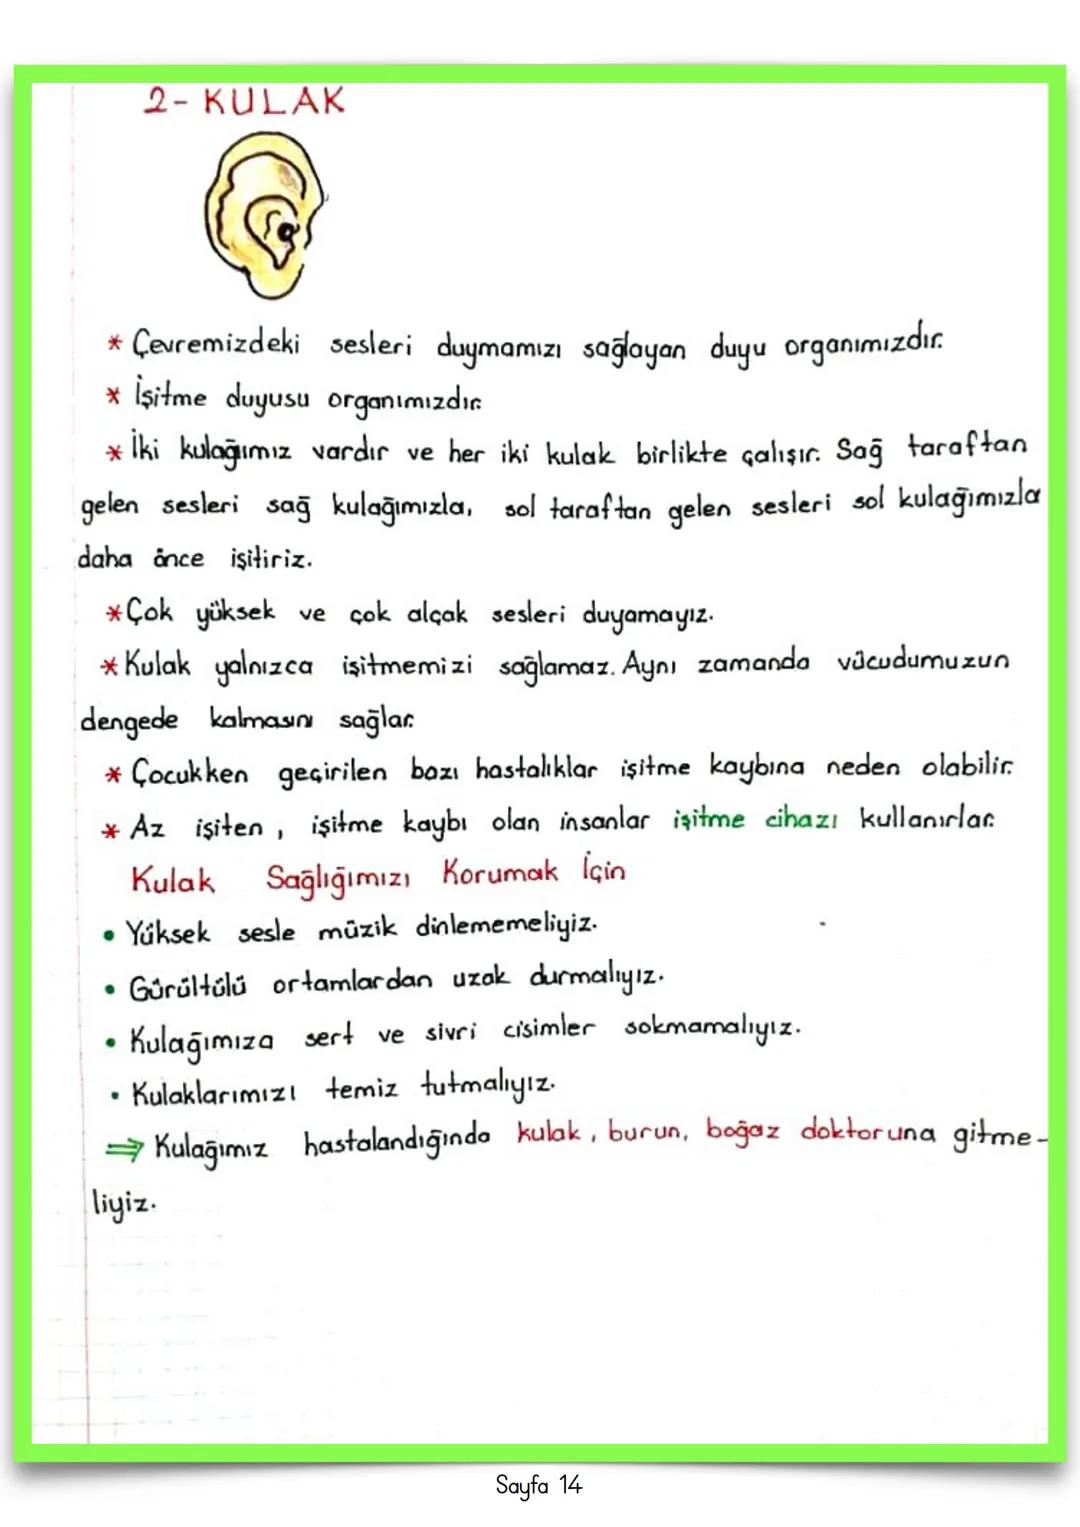 2- KULAK
* Çevremizdeki sesleri duymamızı sağlayan duyu organımızdır.
* İşitme duyusu organımızdır.
* İki kulağımız vardır ve her iki kulak birlikte çalışır. Sağ taraftan
gelen sesleri sağ kulağımızla, sol taraftan gelen sesleri sol kulağımızla
daha önce işitiriz.
* Çok yüksek ve çok alçak sesleri duyamayız.
* Kulak yalnızca işitmemizi sağlamaz. Aynı zamanda vücudumuzun
dengede kalmasını sağlar.
* Çocukken geçirilen bazı hastalıklar işitme kaybına neden olabilir.
* Az işiten, işitme kaybı olan insanlar işitme cihazı kullanırlar.
Kulak Sağlığımızı Korumak İçin
• Yüksek sesle müzik dinlememeliyiz.
• Gürültülü ortamlardan uzak durmalıyız.
• Kulağımıza sert ve sivri cisimler sokmamalıyız.
• Kulaklarımızı temiz tutmalıyız.
⇒ Kulağımız hastalandığında kulak, burun, boğaz doktoruna gitme-
liyiz.
Sayfa 14